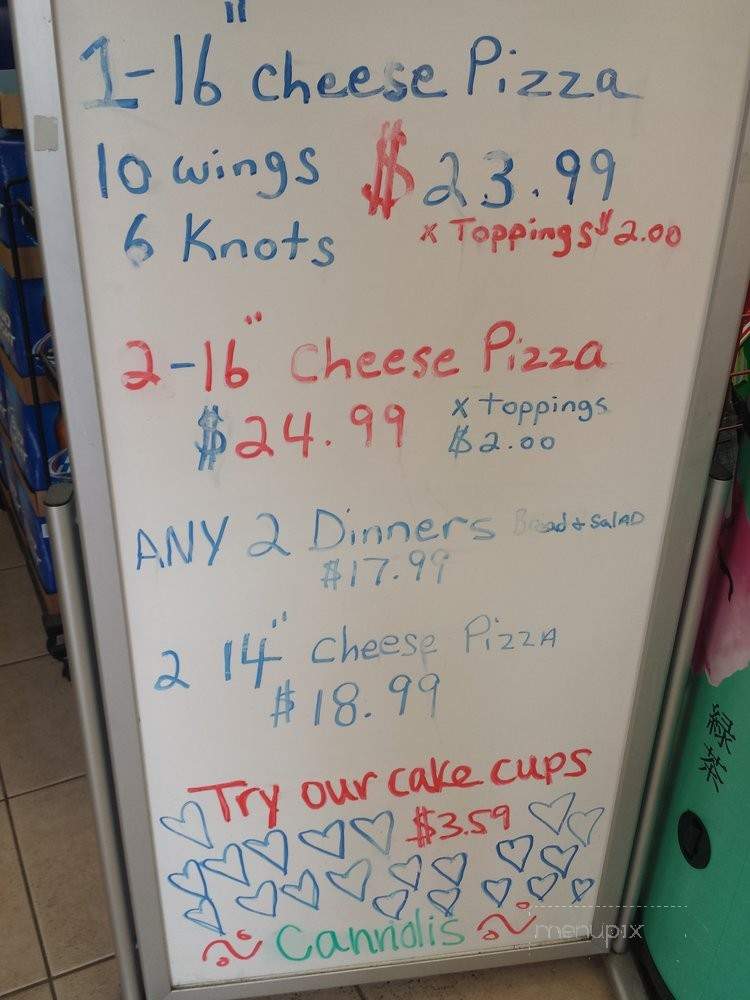 1-16" cheese Pizza
10 wings $23.99
6 Knots x Toppings $2.00
2-16" cheese Pizza
$24.99 x toppings
$2.00
ANY 2 Dinners Bread & SalAD
$17.99
2 14" cheese PizzA
$18.99
Try our cake cups
$3.59
Cannolis
menupix
緑茶